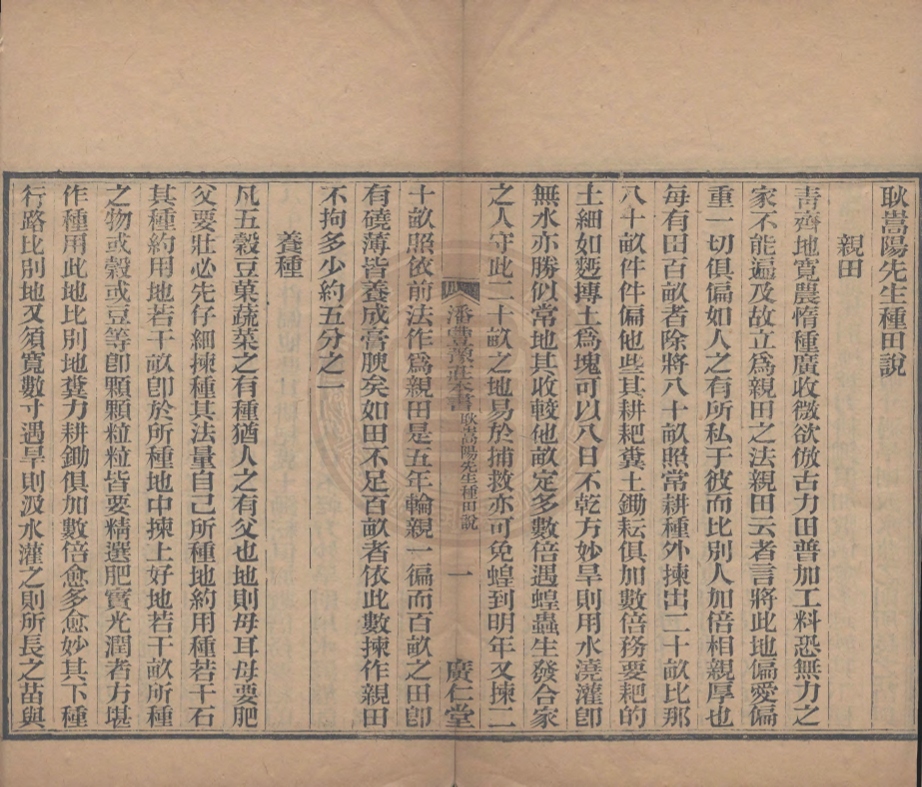 耿嵩陽先生種田說
親田
青齊地寬農惰種廣收微欲倣古力田普加工料恐無力之
家不能遍及故立爲親田之法親田云者言將此地偏愛偏
重一切俱偏如人之有所私于彼而比別人加倍相親厚也
每有田百畝者除將八十畝照常耕種外揀出二十畝比那
八十畝件件偏他些其耕耙糞土鋤耘俱加數倍務要耙的
土細如麪摶土爲塊可以八日不乾方妙旱則用水澆灌卽
無水亦勝似常地其收較他畝定多數倍遇蝗蟲生發合家
之人守此二十畝之地易於捕救亦可免蝗到明年又揀二
潘豐豫莊本書 耿嵩陽先生種田說 一 廣仁堂
十畝照依前法作爲親田是五年輪親一徧而百畝之田卽
有磽薄皆養成膏腴矣如田不足百畝者依此數揀作親田
不拘多少約五分之一
養種
凡五穀豆菓蔬菜之有種猶人之有父也地則母耳母要肥
父要壯必先仔細揀種其法量自己所種地約用種若干石
其種約用地若干畝卽於所種地中揀上好地若干畝所種
之物或穀或豆等卽顆顆粒粒皆要精選肥實光潤者方堪
作種用此地比別地糞力耕鋤俱加數倍愈多愈妙其下種
行路比別地又須寬數寸遇旱則汲水灌之則所長之苗與